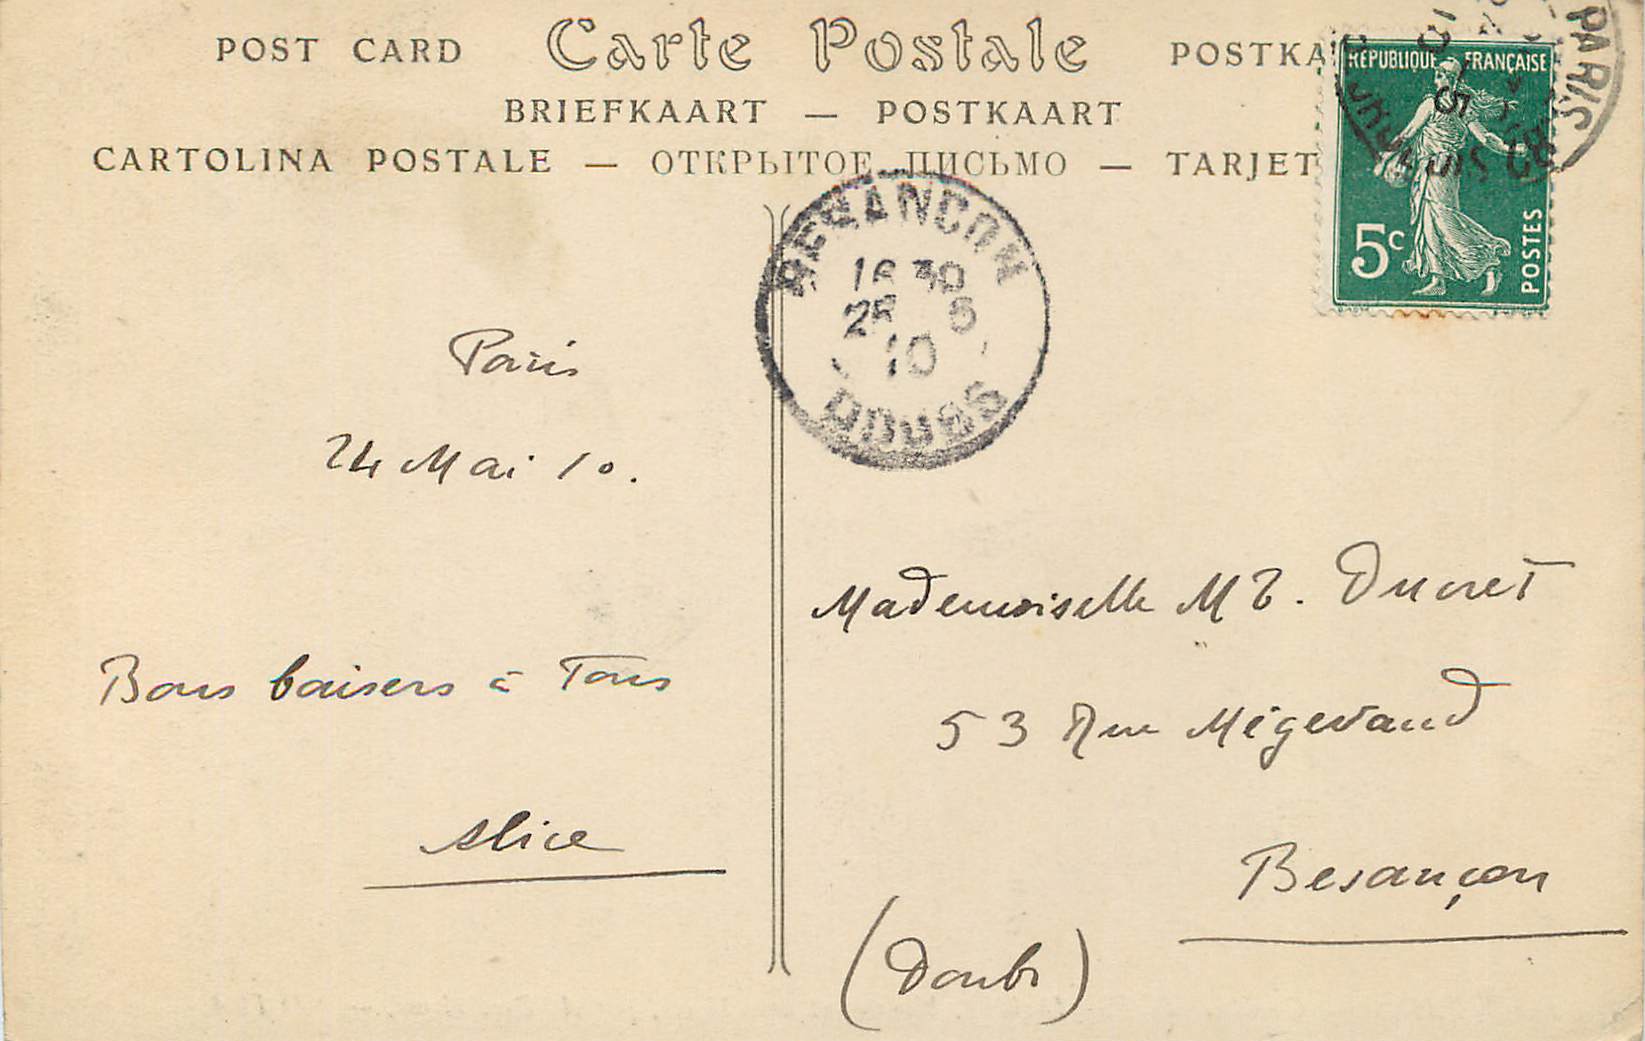 POST CARD Carte Postale POSTKA
BRIEFKAART — POSTKAART
CARTOLINA POSTALE — ОТКРЫТОЕ ПИСЬМО — TARJET
RÉPUBLIQUE FRANÇAISE
5c
POSTES
PARIS
BESANCON
16 30
25 5
10
DOUBS
Paris
24 Mai 10.
Bons baisers à Tous
Alice
Mademoiselle M T. Ducret
53 Rue Mégevand
Besançon
(Doubs)